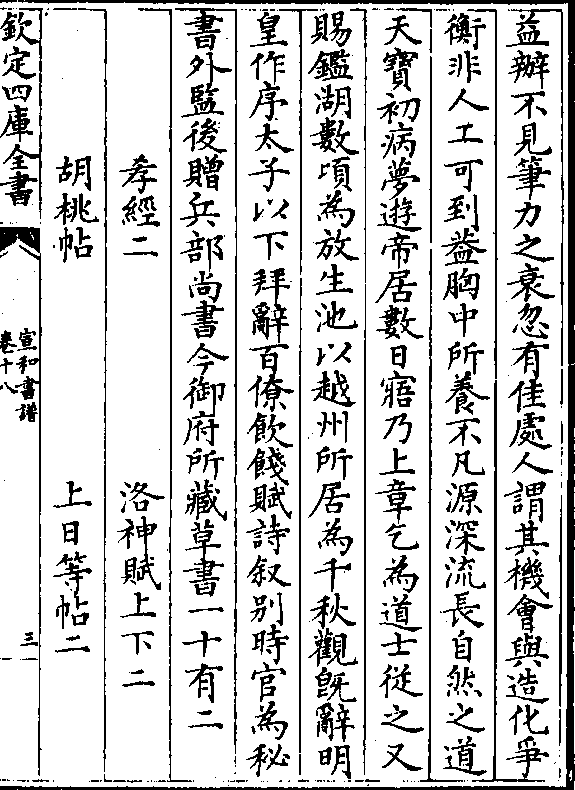 益辦不見筆力之衰忽有佳處人謂其機會與造化爭
衡非人工可到葢胸中所養不凡源深流長自然之道
天寶初病夢遊帝居數日寤乃上章乞為道士從之又
賜鑑湖數頃為放生池以越州所居為千秋觀旣辭明
皇作序太子以下拜辭百僚飲餞賦詩叙别時官為秘
書外監後贈兵部尚書今御府所藏草書一十有二
孝經二　洛神賦上下二
胡桃帖　上日等帖二
欽定四庫全書
宣和書譜
卷十八
三